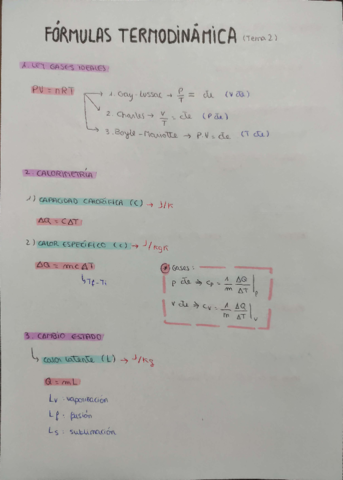 FÓRMULAS TERMODINÁMICA (Tema 2)
1. LEY GASES IDEALES
PV = nRT
1. Gay-Lussac → P/T = cte (V cte)
2. Charles → V/T = cte (P cte)
3. Boyle-Mariotte → P.V = cte (T cte)
2. CALORIMETRÍA
1) CAPACIDAD CALORÍFICA (C) → J/K
ΔQ = CΔT
2) CALOR ESPECÍFICO (c) → J/kgK
ΔQ = mcΔT
Tf - Ti
GASES:
P cte → cp = 1/m ΔQ/ΔT |p
V cte → cv = 1/m ΔQ/ΔT |v
3. CAMBIO ESTADO
calor latente (L) → J/kg
Q = mL
Lv: vaporización
Lf: fusión
Ls: sublimación